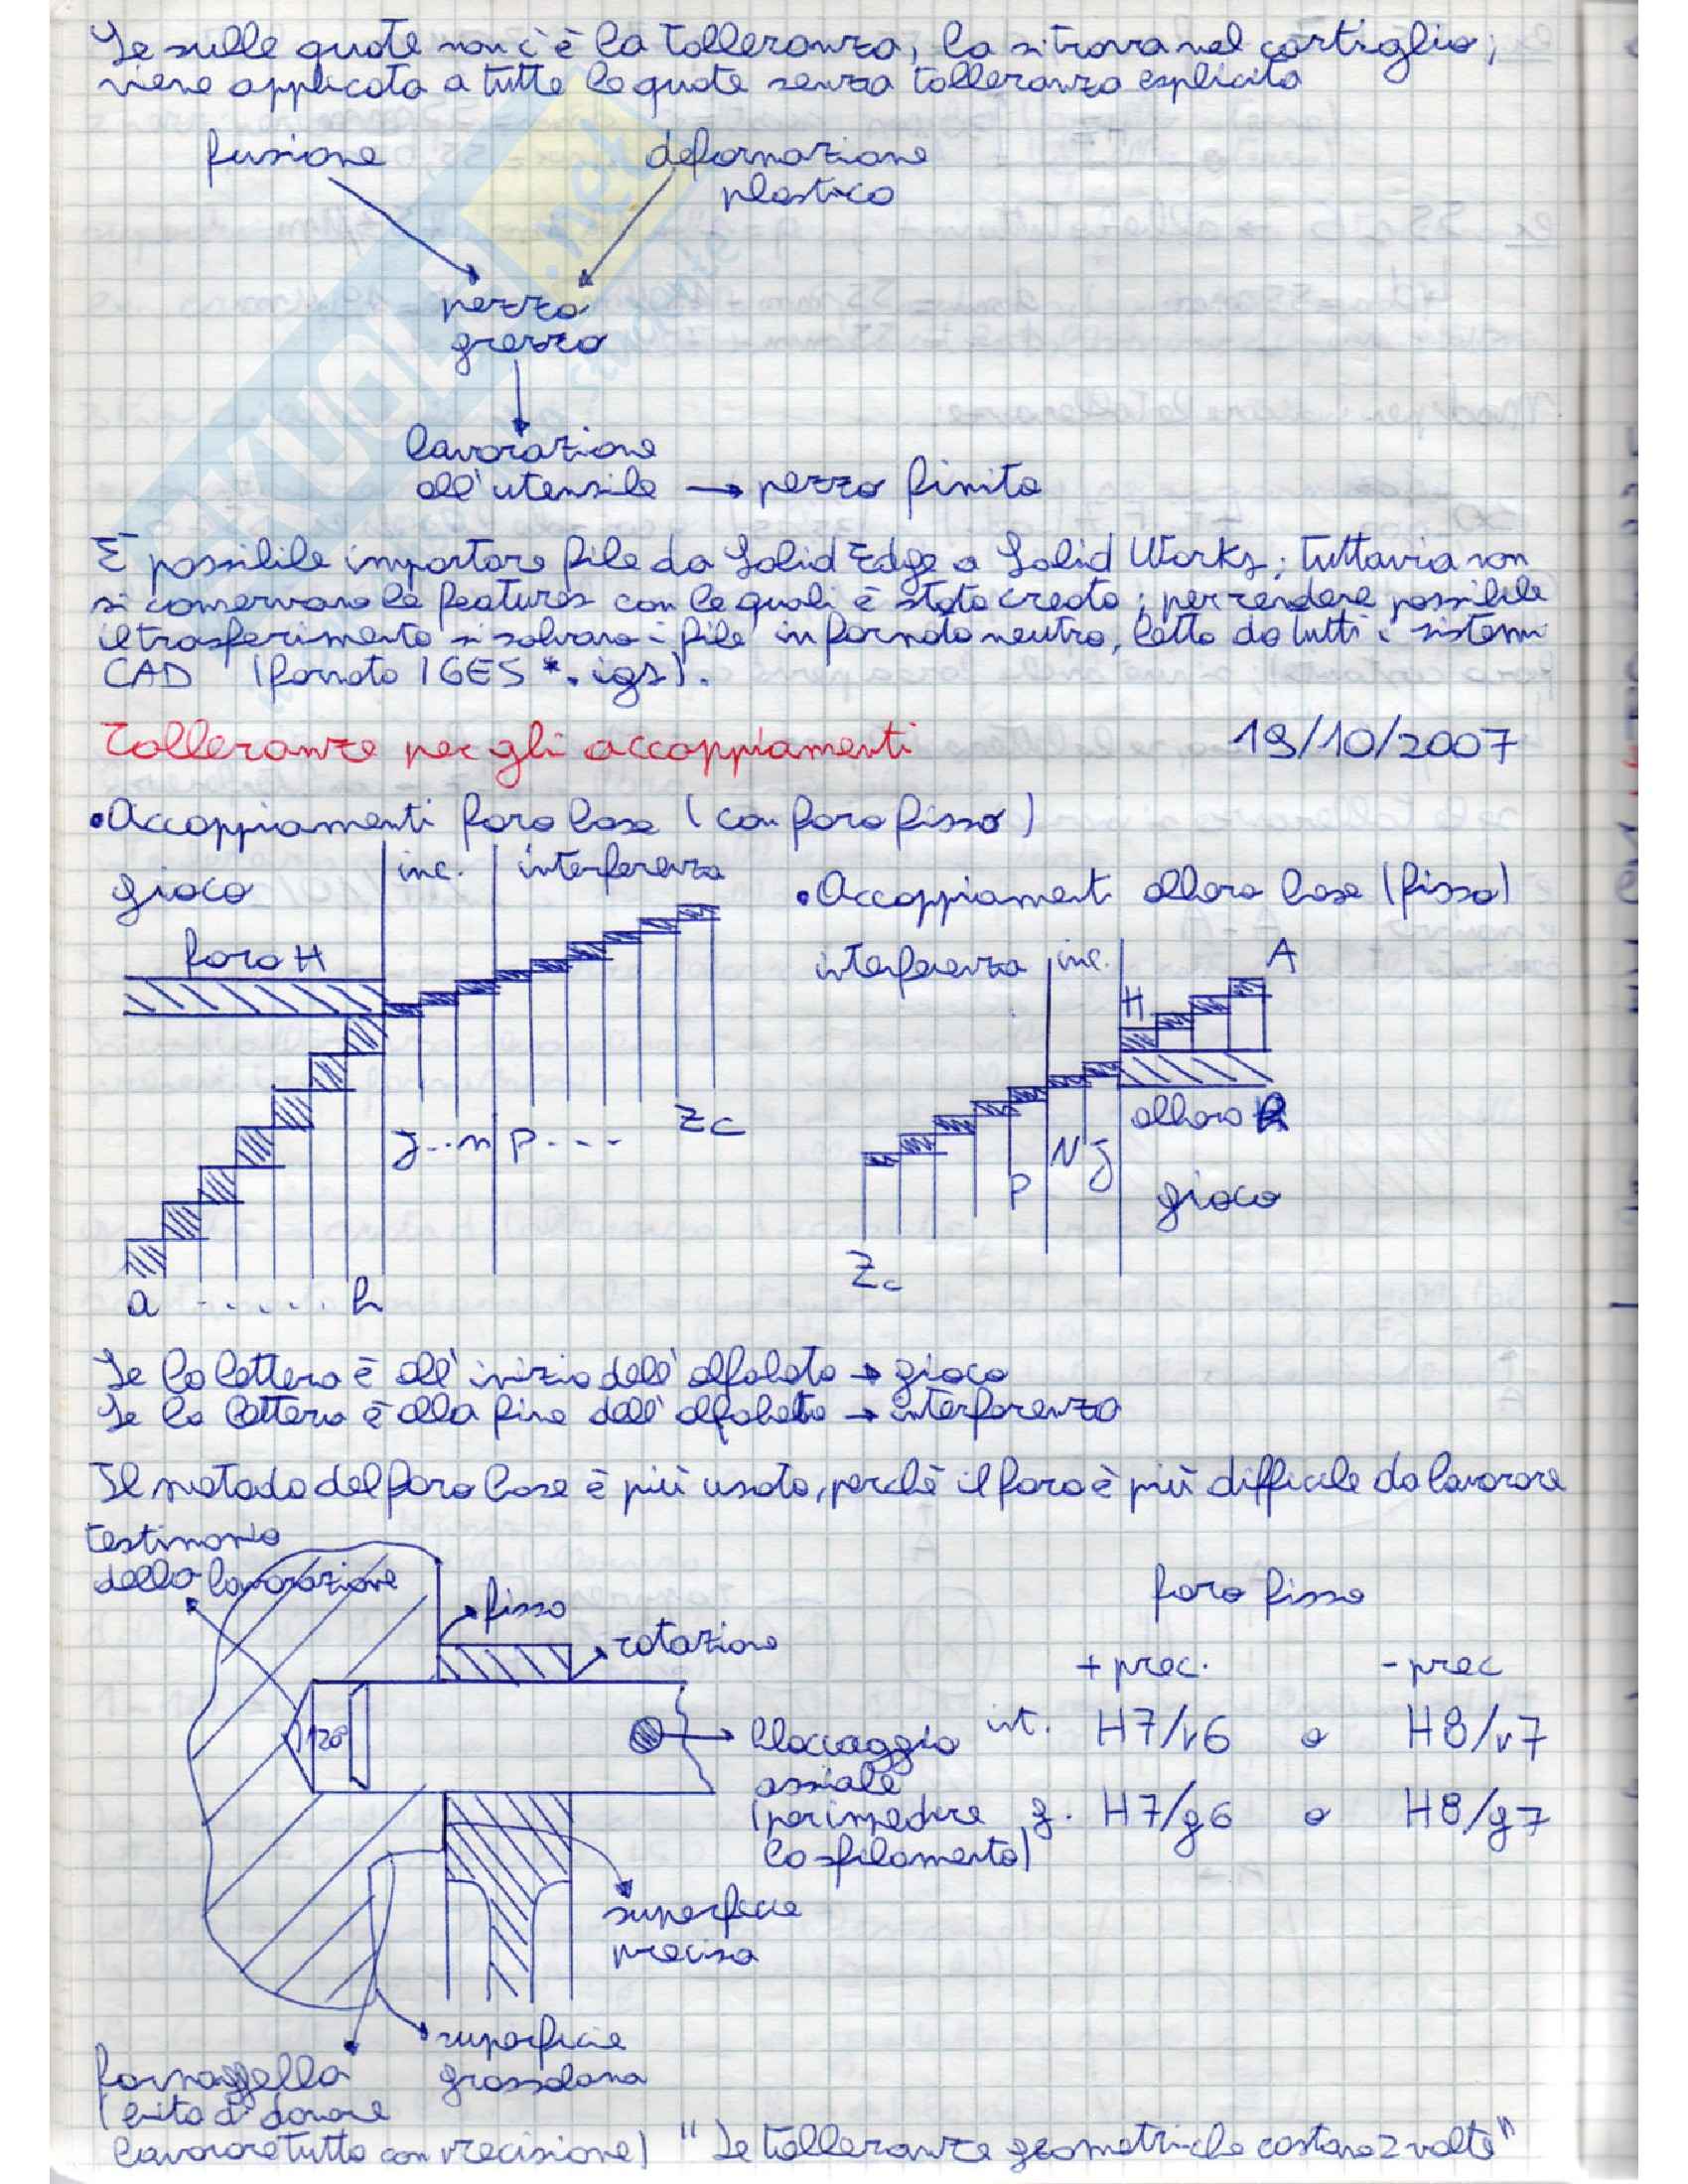 Se sulle quote non c'è la tolleranza, la si trova nel cartiglio;
viene applicata a tutte le quote senza tolleranza esplicita
fusione
deformazione
plastica
pezzo
grezzo
lavorazione
all'utensile → pezzo finito
È possibile importare file da Solid Edge a Solid Works; tuttavia non
si conservano le features con le quali è stato creato; per rendere possibile
il trasferimento si salvano i file in formato neutro, letto da tutti i sistemi
CAD (formato IGES *.igs).
Tolleranze per gli accoppiamenti 19/10/2007
•Accoppiamenti foro base (con foro fisso)
gioco
inc.
interferenza
foro H
j..n
p....
Zc
a ...... h
•Accoppiamenti albero base (fisso)
interferenza
inc.
A
H
albero
P
N
J
gioco
Zc
Se la lettera è all'inizio dell'alfabeto → gioco
Se la lettera è alla fine dell'alfabeto → interferenza
Il metodo del foro base è più usato, perchè il foro è più difficile da lavorare
testimonio
della lavorazione
fisso
rotazione
120°
bloccaggio
assiale
(per impedire
lo sfilamento)
foro fisso
+ prec. - prec
int. H7/r6 o H8/r7
g. H7/g6 o H8/g7
superficie
precisa
superficie
grossolana
formaggella
(evita di dover
lavorare tutto con precisione) "Le tolleranze geometriche costano 2 volte"
SKUOLA
.net